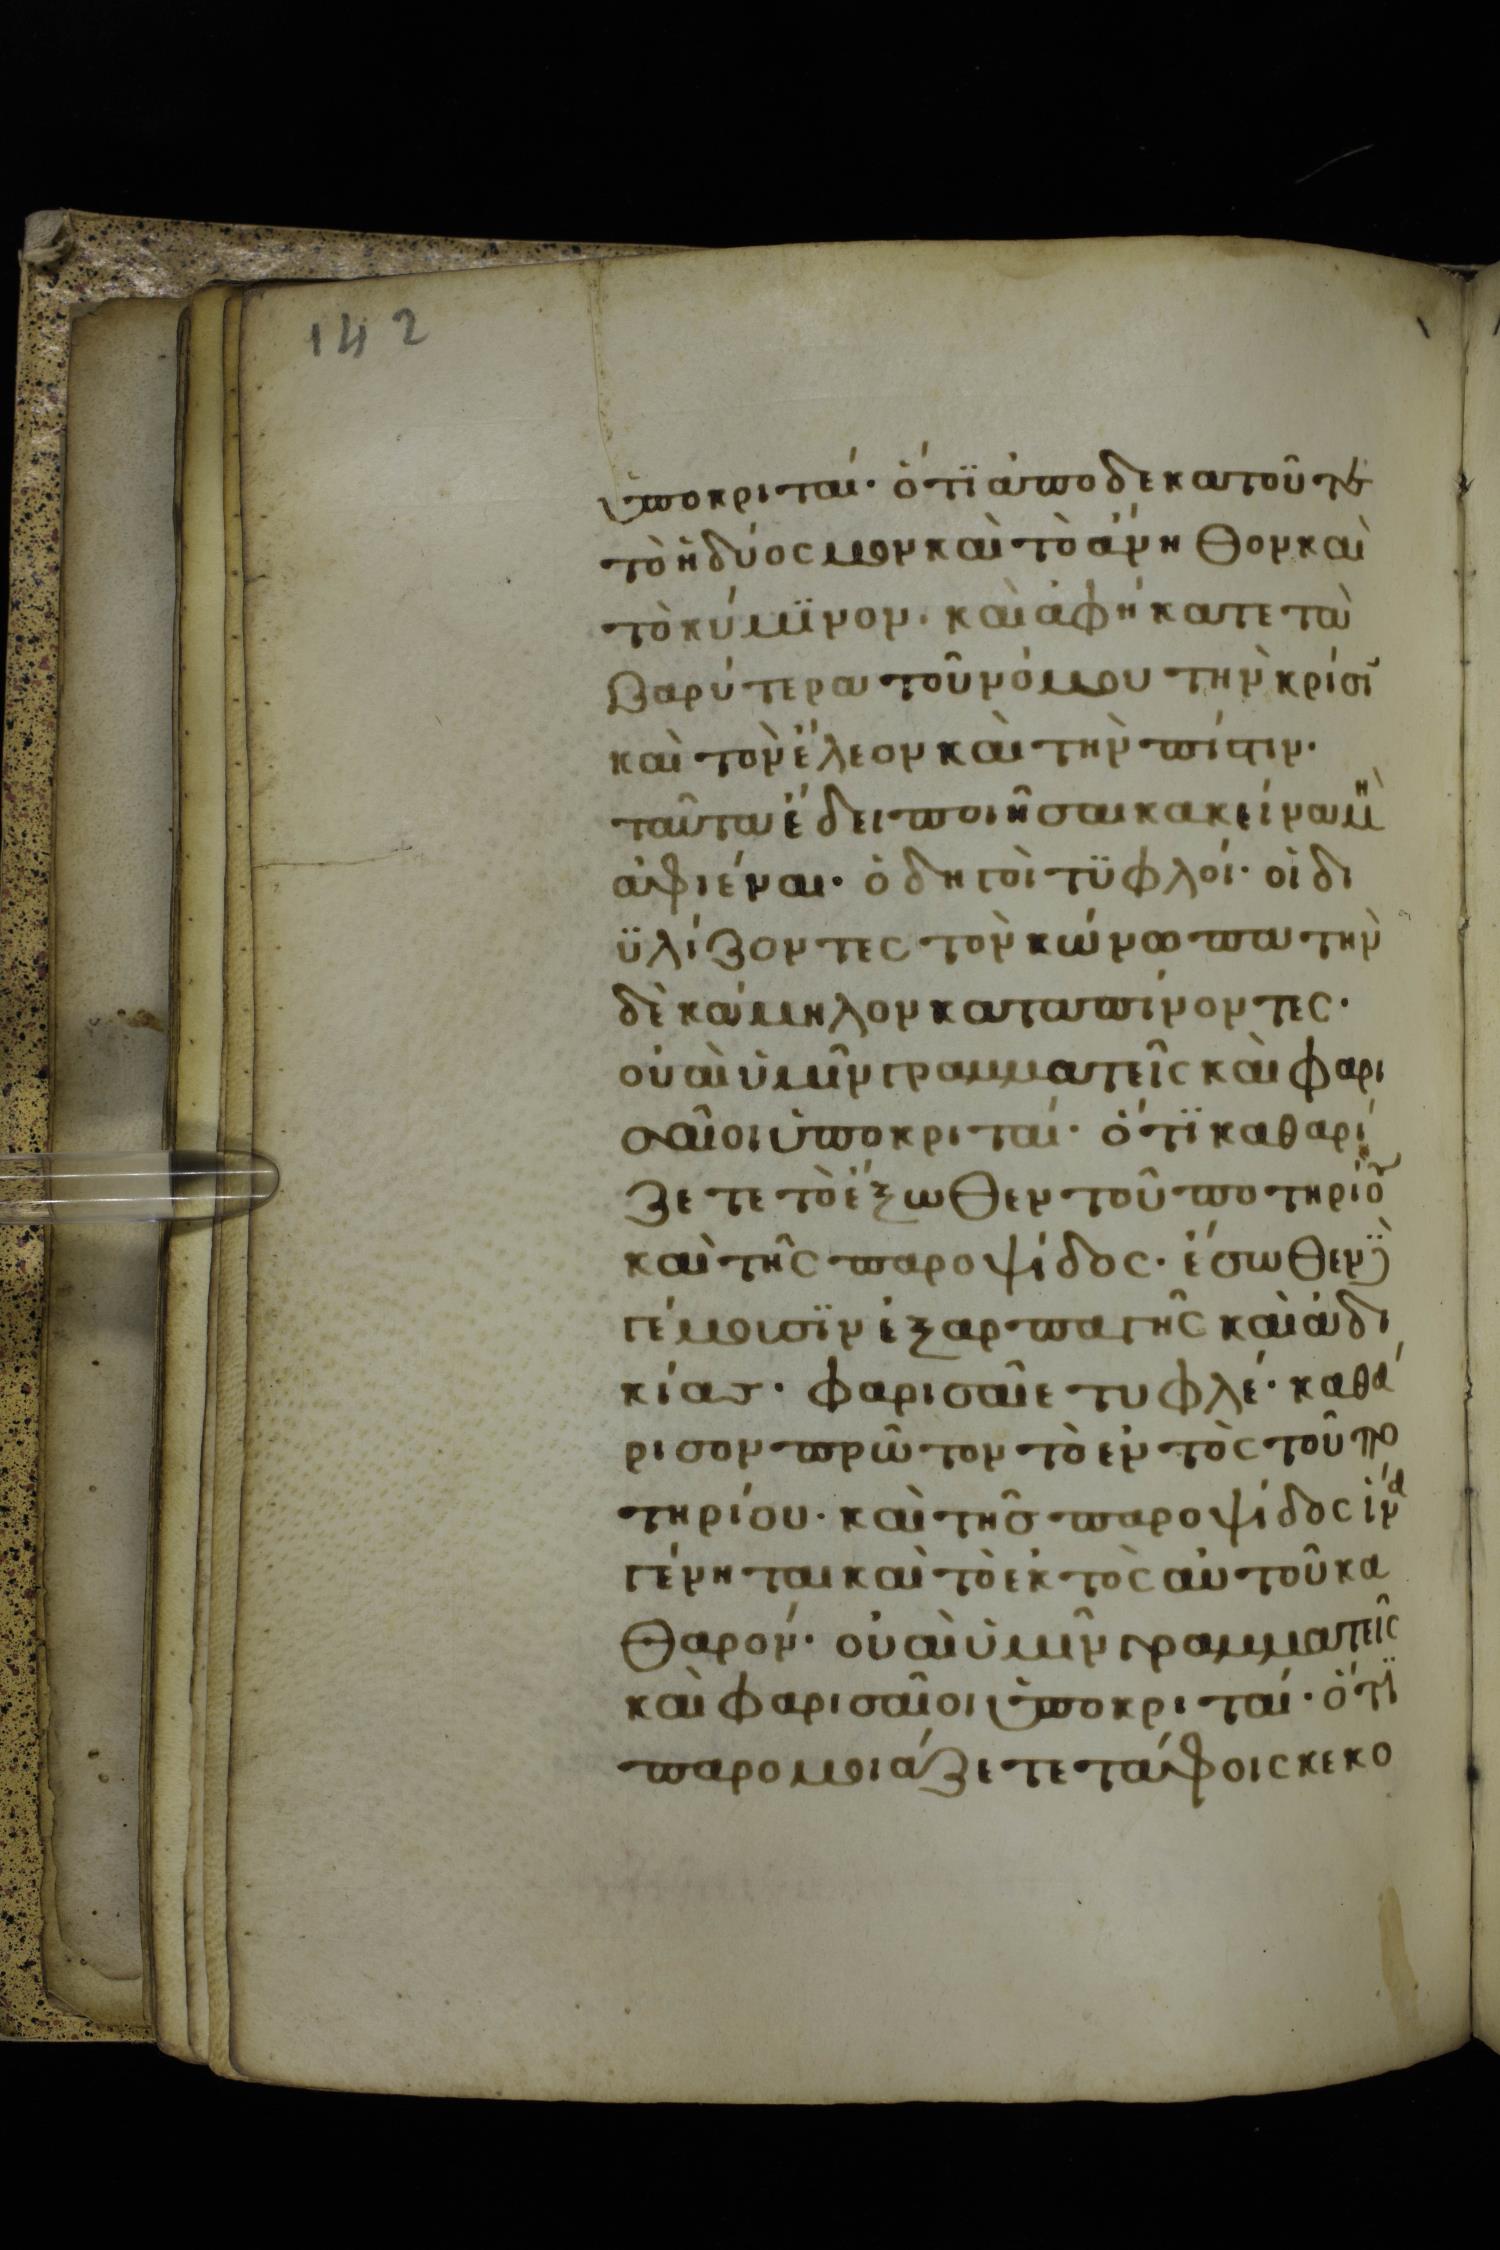 142
ὑποκριταί· ὅτϊ ἀποδεκατοῦτε
τὸ ἡδύοσμον καὶ τὸ ἄνηθον καὶ
τὸ κύμϊνον· καὶ ἀφήκατε τὰ
βαρύτερα τοῦ νόμου τὴν κρίσῑ
καὶ τὸν ἔλεον καὶ τὴν πίστιν·
ταῦτα ἔδει ποιῆσαι κακείνα μὴ
ἀφιέναι· ὁδηγοὶ τϋφλοί· οἱ δι
ϋλίζοντες τὸν κώνωπα τὴν
δὲ κάμηλον καταπίνοντες·
οὐαὶ ὑμῖν γραμματεῖς καὶ φαρι
σαῖοι ὑποκριταί· ὅτϊ καθαρί
ζετε τὸ ἔξωθεν τοῦ ποτηρίου
καὶ τῆς παροψίδος· ἔσωθεν δὲ
γέμουσϊν ἐξ ἁρπαγῆς καὶ ἀδι
κίας· φαρισαῖε τυφλέ· καθά
ρισον πρῶτον τὸ ἐντὸς τοῦ πο
τηρίου· καὶ τῆς παροψίδος ἵνα
γένηται καὶ τὸ ἐκτὸς αὐτοῦ κα
θαρόν· οὐαὶ ὑμῖν γραμματεῖς
καὶ φαρισαῖοι ὑποκριταί· ὅτϊ
παρομοιάζετε τάφοις κεκο